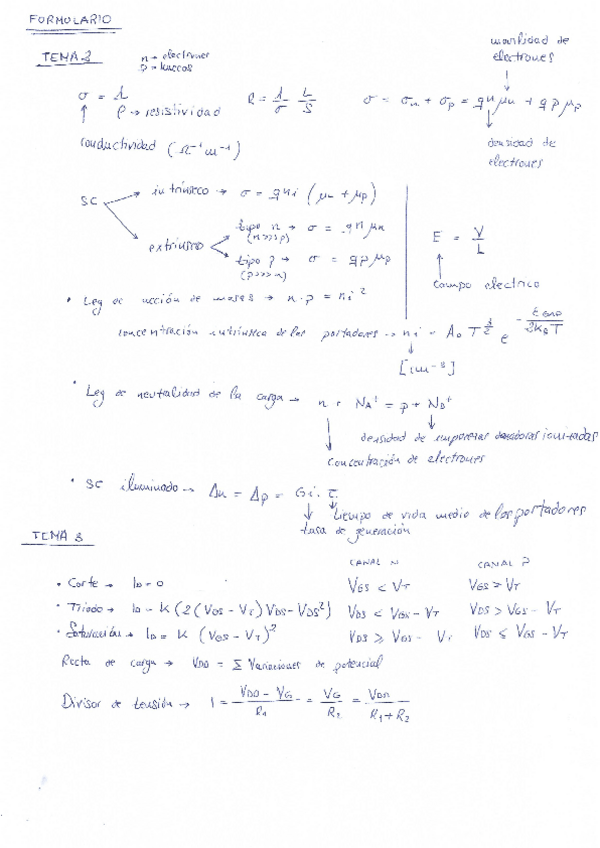 FORMULARIO
TEMA 2
n → electrones
p → huecos
movilidad de electrones
σ = 1/ρ → resistividad
R = 1/σ L/S
σ = σn + σp = q n μn + q p μp
conductividad (Ω⁻¹ m⁻¹)
densidad de electrones
SC
intrínseco → σ = q ni (μn + μp)
extrínseco
tipo n → σ = q n μn
(n>>>p)
tipo p → σ = q p μp
(p>>>n)
E = V/L
campo electrico
• Ley de acción de masas → n · p = ni²
concentración intrínseca de los portadores → ni = A₀ T^3/2 e^-
2KBT
• Ley de neutralidad de la carga → n + NA⁻ = p + ND⁺
densidad de impurezas donadoras ionizadas
concentración de electrones
• SC iluminado → Δn = Δp = Gi · τ
tiempo de vida medio de los portadores
tasa de generación
TEMA 3
CANAL N
CANAL P
• Corte → ID = 0
VGS < VT
VGS > VT
• Triodo → ID = K (2(VGS - VT) VDS - VDS²)
VDS < VGS - VT
VDS > VGS - VT
• Saturación → ID = K (VGS - VT)²
VDS ≥ VGS - VT
VDS ≤ VGS - VT
Recta de carga → VDD = Σ Variaciones de potencial
Divisor de tensión → I = VDD - VG / R1 = VG / R2 = VDD / R1 + R2